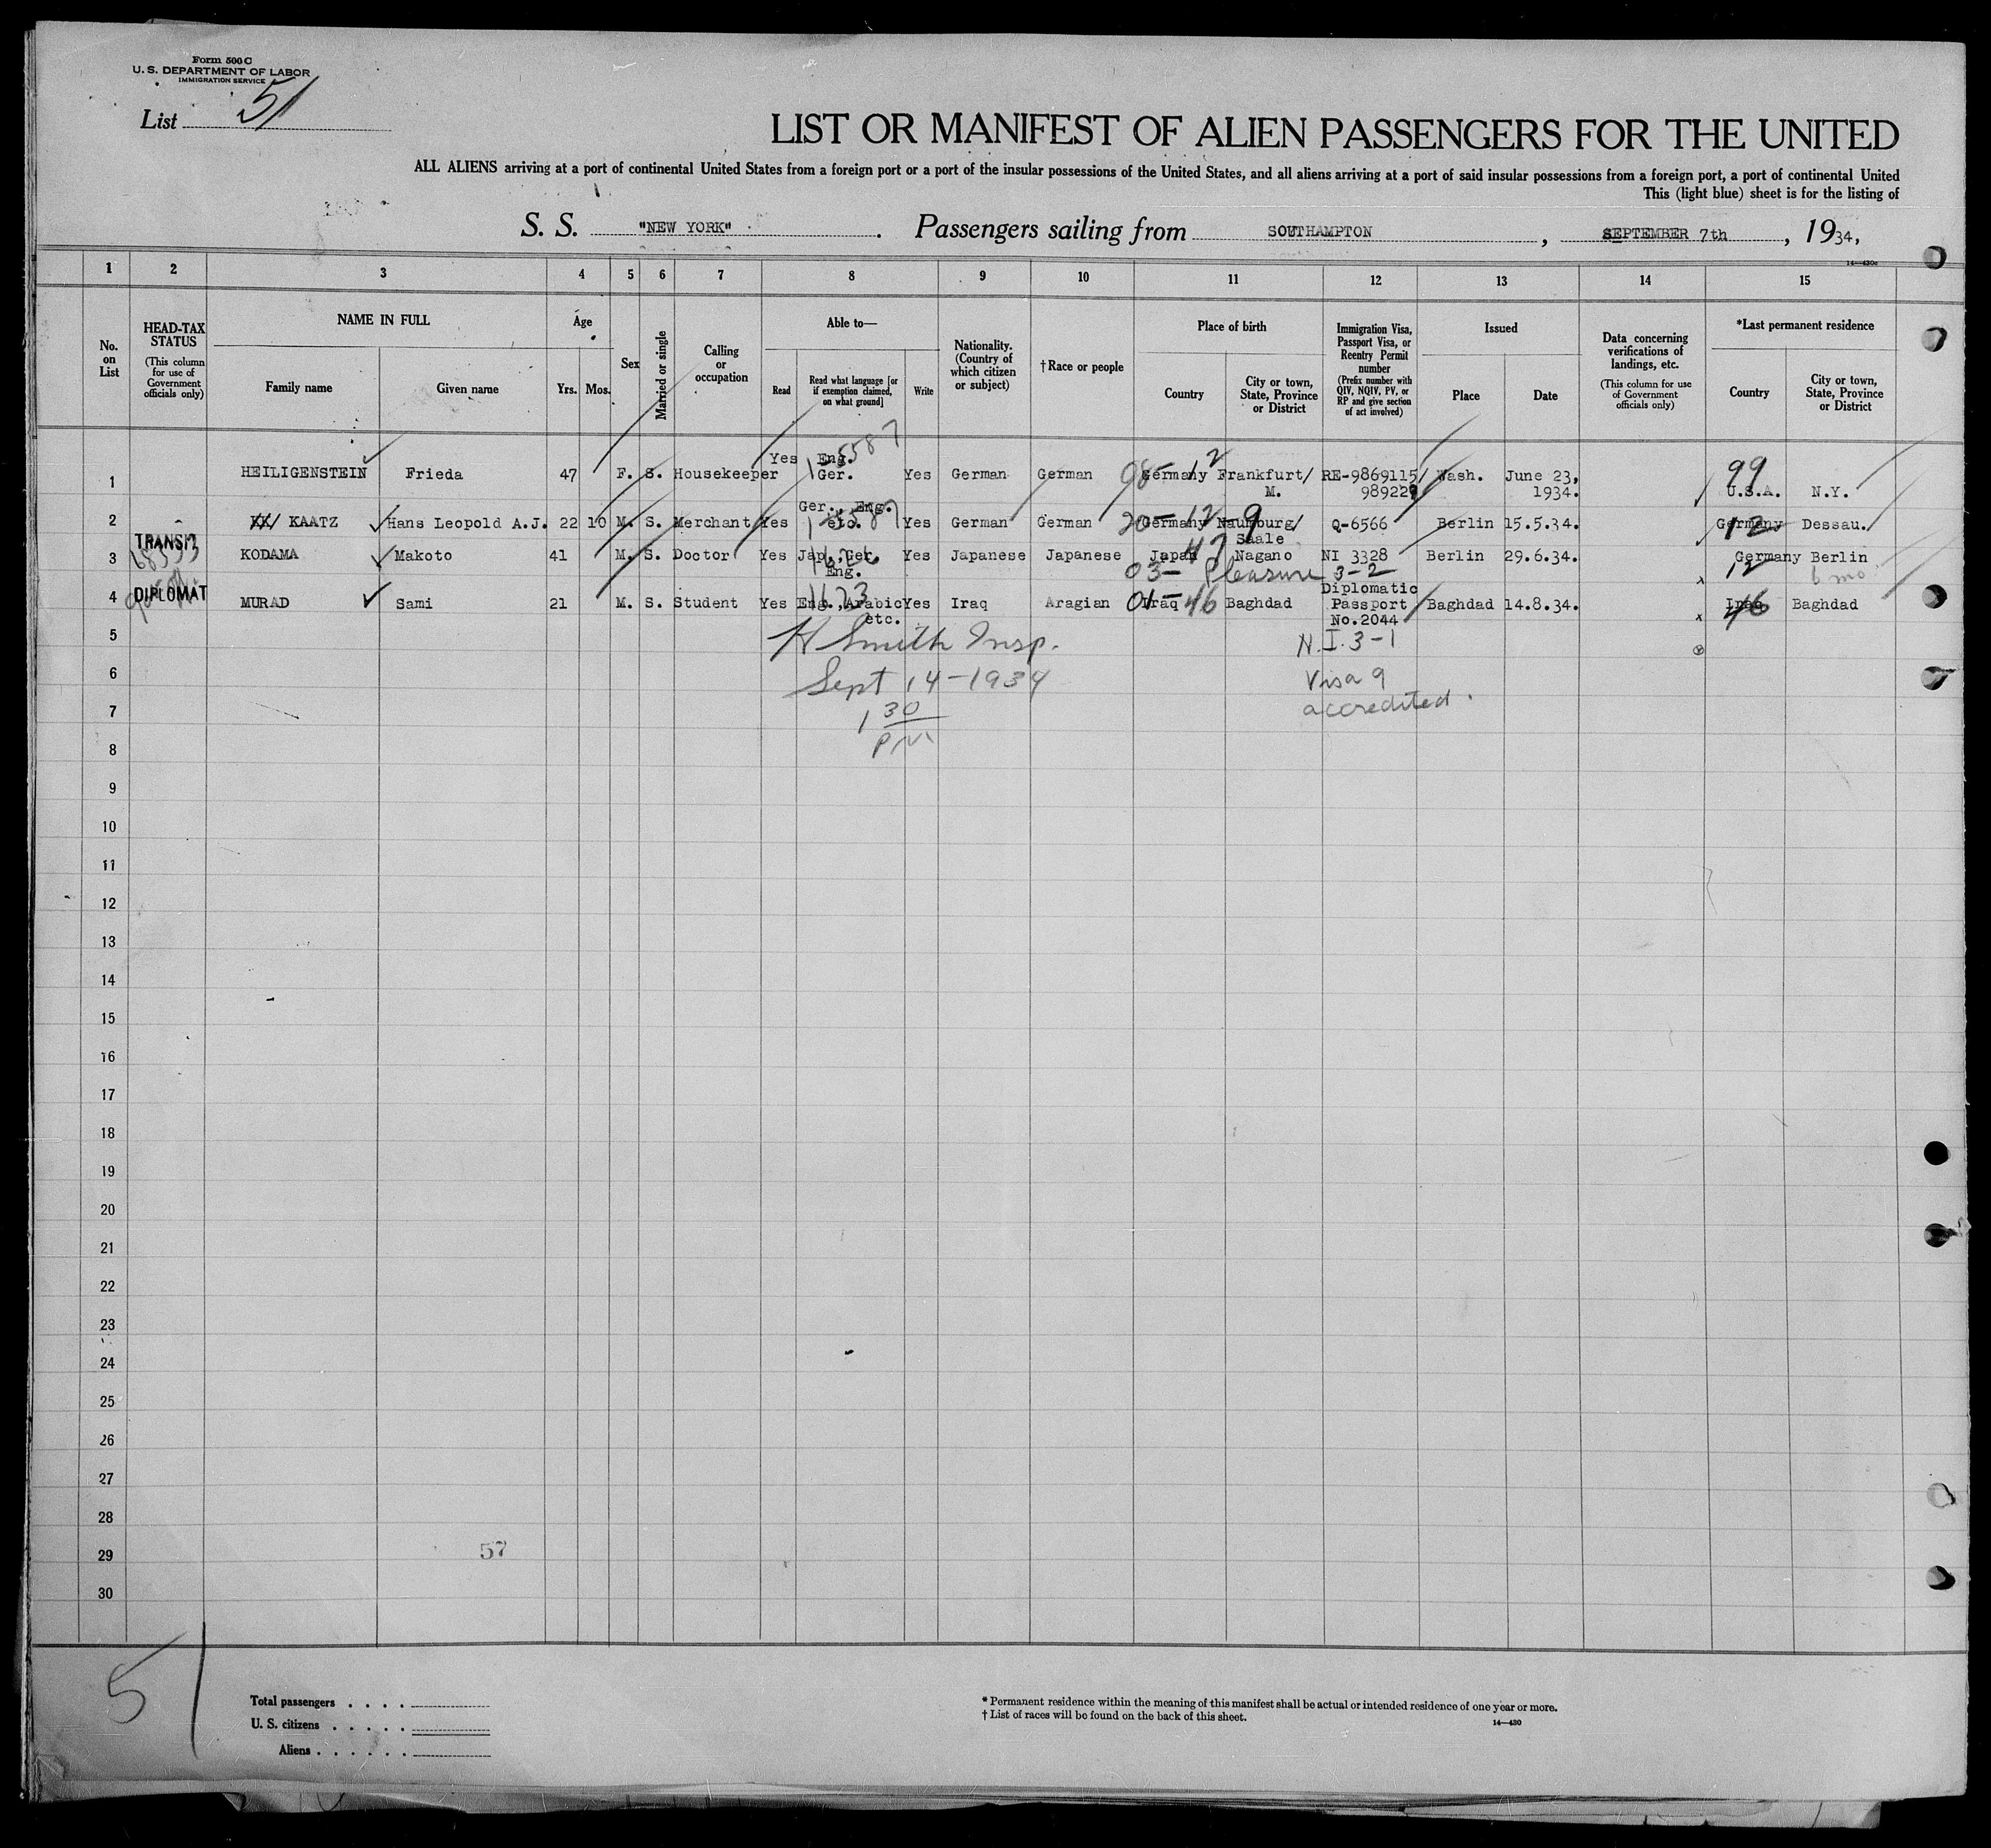 Form 500 C
U. S. DEPARTMENT OF LABOR
IMMIGRATION SERVICE
List 51
LIST OR MANIFEST OF ALIEN PASSENGERS FOR THE UNITED
ALL ALIENS arriving at a port of continental United States from a foreign port or a port of the insular possessions of the United States, and all aliens arriving at a port of said insular possessions from a foreign port, a port of continental United
This (light blue) sheet is for the listing of
S. S. "NEW YORK" . Passengers sailing from SOUTHAMPTON , SEPTEMBER 7th , 1934,
14—430c
1 2 3 4 5 6 7 8 9 10 11 12 13 14 15
No. on List
HEAD-TAX STATUS
(This column for use of Government officials only)
NAME IN FULL
Family name Given name
Age
Yrs. Mos.
Sex
Married or single
Calling or occupation
Able to—
Read
Read what language [or if exemption claimed, on what ground]
Write
Nationality. (Country of which citizen or subject)
†Race or people
Place of birth
Country
City or town, State, Province or District
Immigration Visa, Passport Visa, or Reentry Permit number
(Prefix number with QIV, NQIV, PV, or RP and give section of act involved)
Issued
Place Date
Data concerning verifications of landings, etc.
(This column for use of Government officials only)
*Last permanent residence
Country
City or town, State, Province or District
1 HEILIGENSTEIN Frieda 47 F. S. Housekeeper Yes Eng. Ger. Yes German German Germany Frankfurt/ M. RE-9869115/ 989229 Wash. June 23, 1934. U.S.A. N.Y.
98- 12 99
2 XX/ KAATZ Hans Leopold A.J. 22 10 M. S. Merchant Yes Ger., Eng. etc. Yes German German Germany Naumburg/ Saale Q-6566 Berlin 15.5.34. Germany Dessau.
20- 12 9 12
TRANSIT
3 KODAMA Makoto 41 M. S. Doctor Yes Jap., Ger. Eng. Yes Japanese Japanese Japan Nagano NI 3328 Berlin 29.6.34. Germany Berlin
47 12 6 mo
03- Pleasure 3-2
DIPLOMAT
4 MURAD Sami 21 M. S. Student Yes Eng., Arabic etc. Yes Iraq Aragian Iraq Baghdad Diplomatic Passport No.2044 Baghdad 14.8.34. Iraq Baghdad
01- 46 46
5 H Smith Insp. N.I. 3-1
6 Sept 14-1934 Visa 9
7 1 30 accredited.
8 PM
9
10
11
12
13
14
15
16
17
18
19
20
21
22
23
24
25
26
27
28
29 57
30
51
Total passengers . . . .
U. S. citizens . . . . .
Aliens . . . . . .
* Permanent residence within the meaning of this manifest shall be actual or intended residence of one year or more.
† List of races will be found on the back of this sheet.
14—430